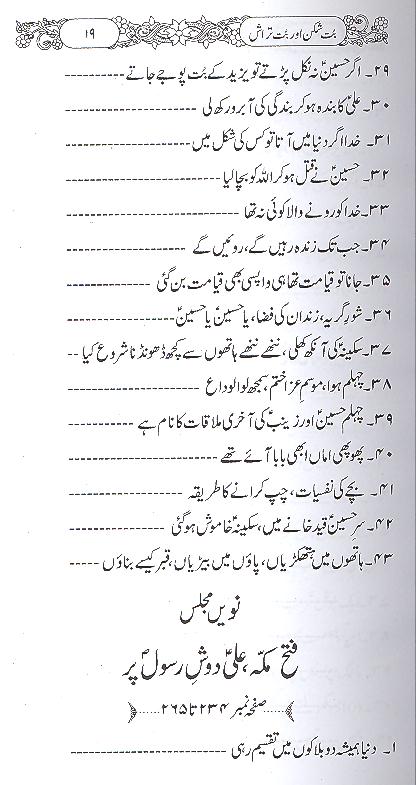 بت شکن اور بت تراش
۱۹
۲۹۔ اگر حسینؑ نہ نکل پڑتے تو یزید کے بُت پوجے جاتے
۳۰۔ علیؑ کا بندہ ہو کر بندگی کی آبرو رکھ لی
۳۱۔ خدا اگر دنیا میں آتا تو کس کی شکل میں
۳۲۔ حسینؑ نے قتل ہو کر اللہ کو بچالیا
۳۳۔ خدا کو رونے والا کوئی نہ تھا
۳۴۔ جب تک زندہ رہیں گے، روئیں گے
۳۵۔ جانا تو قیامت تھا ہی واپسی بھی قیامت بن گئی
۳۶۔ شورِ گریہ، زندان کی فضا، یا حسینؑ یا حسینؑ
۳۷۔ سکینہؑ کی آنکھ کھلی، ننھے ننھے ہاتھوں سے کچھ ڈھونڈنا شروع کیا
۳۸۔ چہلم ہوا، موسمِ عزا ختم، سمجھ لو الوداع
۳۹۔ چہلم حسینؑ اور زینبؑ کی آخری ملاقات کا نام ہے
۴۰۔ پھوپھی اماں ابھی بابا آئے تھے
۴۱۔ بچے کی نفسیات، چپ کرانے کا طریقہ
۴۲۔ سرِ حسینؑ قید خانے میں، سکینہؑ خاموش ہوگئی
۴۳۔ ہاتھوں میں ہتھکڑیاں، پاؤں میں بیڑیاں، قبر کیسے بناؤں
نویں مجلس
فتح مکہ، علیؑ دوشِ رسولؐ پر
صفحہ نمبر ۲۳۴ تا ۲۶۵
۱۔ دنیا ہمیشہ دو بلاکوں میں تقسیم رہی